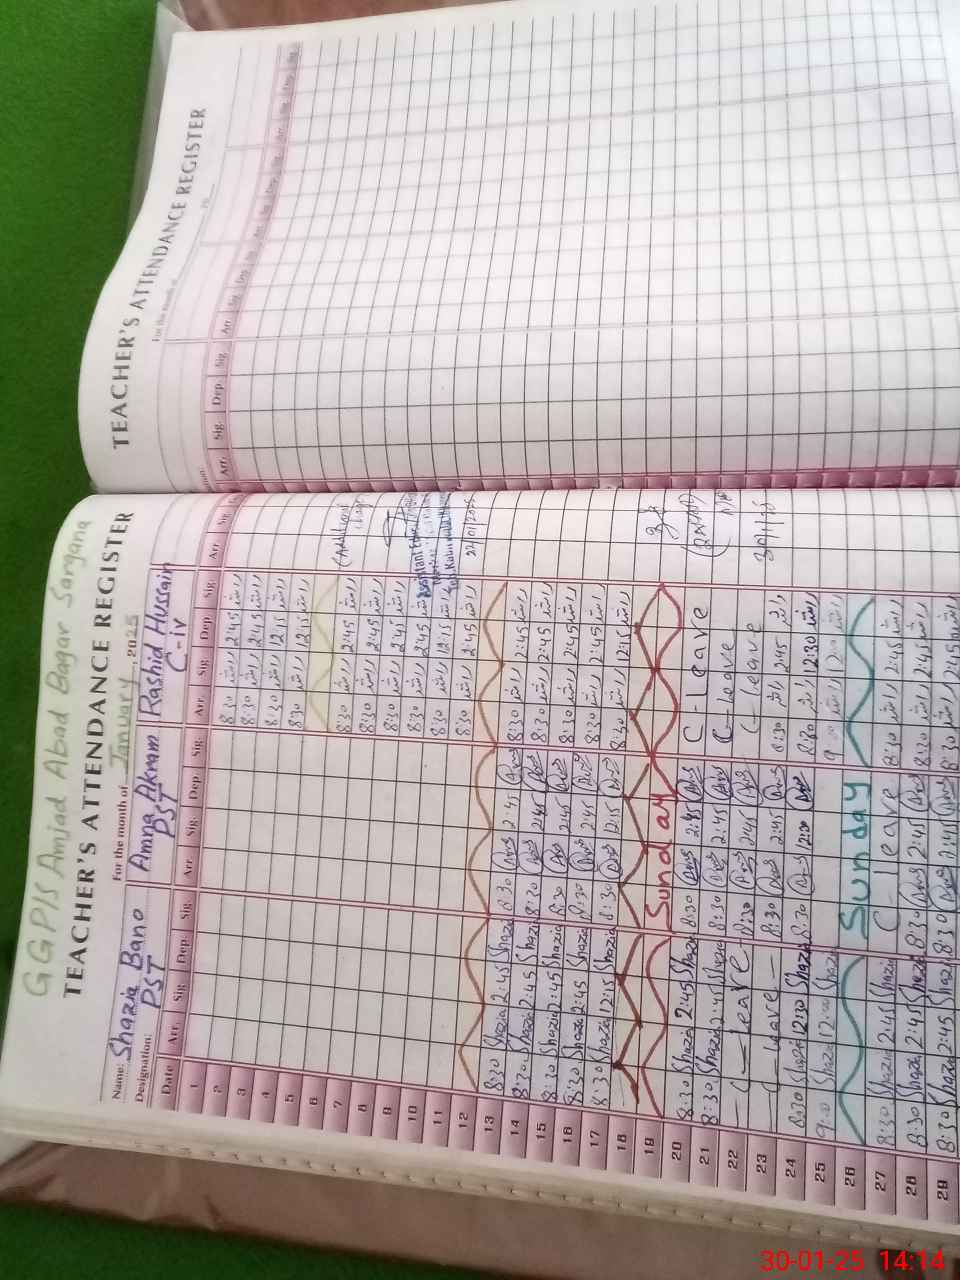 GGPS Amjad Abad Bagar Sargana
TEACHER'S ATTENDANCE REGISTER
For the month of January, 2025
Name: Shazia Bano Amna Akram Rashid Hussain
Designation: PST PST C-iv
Date Arr. Sig. Dep. Sig. Arr. Sig. Dep. Sig. Arr. Sig. Dep. Sig. Arr. Sig.
1 8:30 راشد 2:45 راشد
2 8:30 راشد 2:45 راشد
3 8:30 راشد 12:15 راشد
4 8:30 راشد 12:15 راشد
5
6 8:30 راشد 2:45 راشد
7 8:30 راشد 2:45 راشد
8 8:30 راشد 2:45 راشد
9 8:30 راشد 2:45 راشد
10 8:30 راشد 12:15 راشد
11 8:30 راشد 2:45 راشد
12
13 8:30 Shazia 2:45 Shazia 8:30 2:45 8:30 راشد 2:45 راشد
14 8:30 Shazia 2:45 Shazia 8:30 2:45 8:30 راشد 2:45 راشد
15 8:30 Shazia 2:45 Shazia 8:30 2:45 8:30 راشد 2:45 راشد
16 8:30 Shazia 2:45 Shazia 8:30 2:45 8:30 راشد 2:45 راشد
17 8:30 Shazia 12:15 Shazia 8:30 12:15 8:30 راشد 12:15 راشد
18
19 Sunday
20 8:30 Shazia 2:45 Shazia 8:30 2:45 C-Leave
21 8:30 Shazia 2:45 Shazia 8:30 2:45 C-Leave
22 C-Leave 8:30 2:45 C-Leave
23 C-Leave 8:30 2:45 8:30 راشد 2:45 راشد
24 8:30 Shazia 12:30 Shazia 8:30 12:30 8:30 راشد 12:30 راشد
25 9:00 Shazia 12:00 Shazia 9:00 راشد 12:00 راشد
26 Sunday
27 8:30 Shazia 2:45 Shazia C-leave 8:30 راشد 2:45 راشد
28 8:30 Shazia 2:45 Shazia 8:30 2:45 8:30 راشد 2:45 راشد
29 8:30 Shazia 2:45 Shazia 8:30 2:45 8:30 راشد 2:45 راشد
Assistant Edu
22/01/2025
30/1/25
TEACHER'S ATTENDANCE REGISTER
For the month of 20
Arr. Sig. Dep. Sig. Arr. Sig. Dep.
30-01-25 14:14